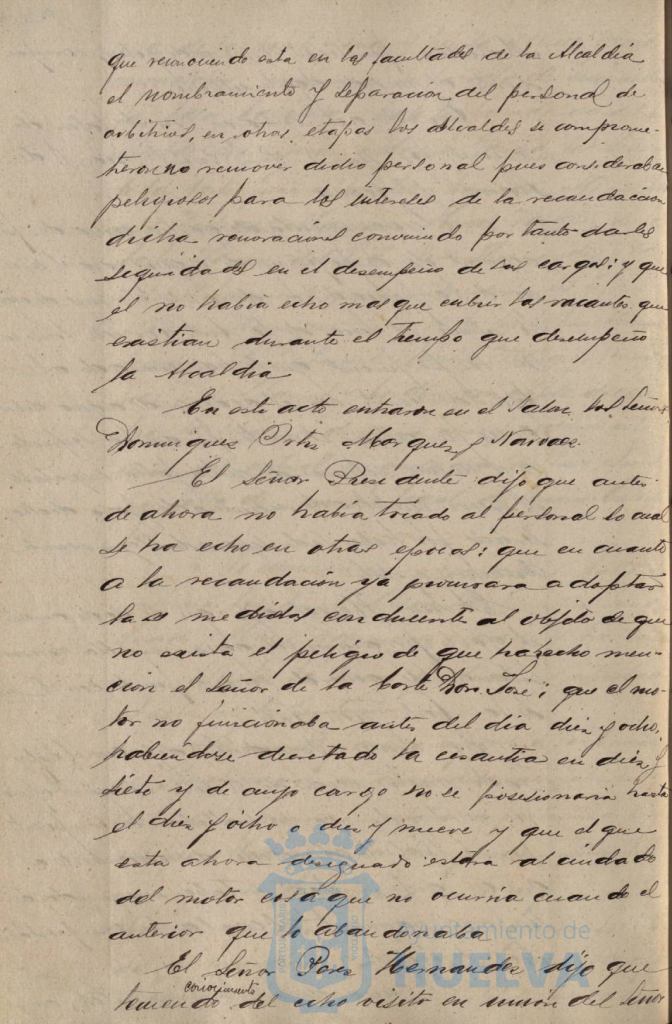 que reconociendo esta en las facultades de la Alcaldia
el nombramiento y separacion del personal de
arbitrios, en otras etapas los alcaldes se comprome-
tieron no remover dicho personal pues consideraban
peligrosos para los intereses de la recaudacion
dicha renovaciones conviniendo por tanto darles
seguridades en el desempeño de sus cargos; y que
el no habia echo mas que cubrir las vacantes que
existian durante el tiempo que desempeño
la Alcaldia
En este acto entraron en el Salon los Señores
Dominguez Ortiz Marquez y Narvaez.
El Señor Presidente dijo que antes
de ahora no habia tocado al personal lo cual
se ha echo en otras epocas: que en cuanto
a la recaudación ya procurara adoptar
las medidas conducente al objeto de que
no exista el peligro de que ha echo men-
cion el Señor de la Corte Don José; que el mo-
tor no funcionaba antes del dia diez y ocho,
habiendose decretado la cesantia en diez y
siete y de cuyo cargo no se posesionaria hasta
el diez y ocho o diez y nueve y que el que
esta ahora designado estara al cuidado
del motor cosa que no ocurria cuando el
anterior que lo abandonaba
El Señor Perez Hernandez dijo que
conocimiento
teniendo del echo visitó en union del Señor
Ayuntamiento de
HUELVA